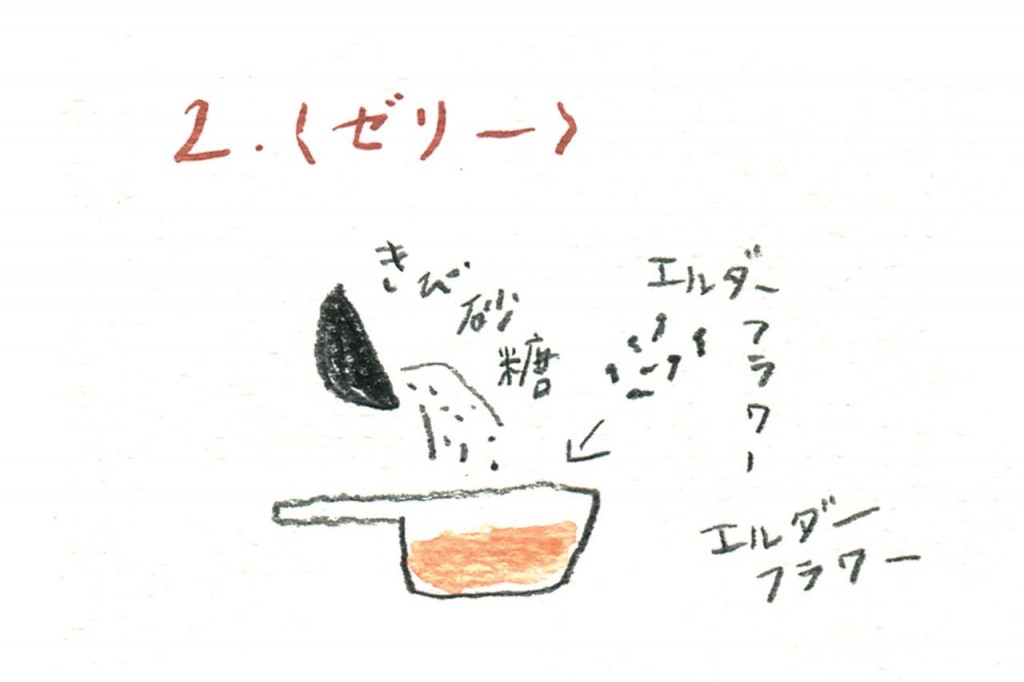 2.〈ゼリー〉
きび砂糖
エルダーフラワー
エルダー
フラワー